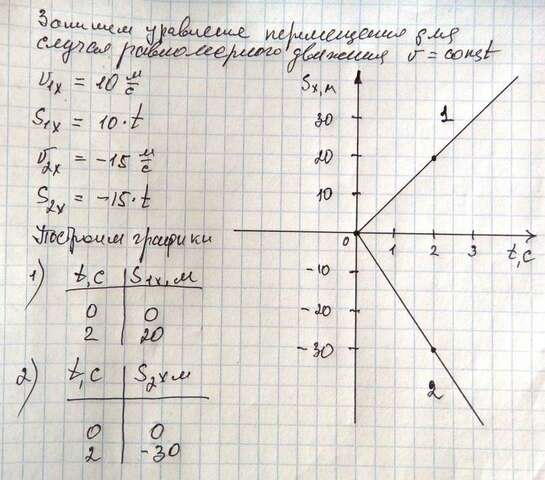 Запишем уравнение перемещения для
случая равномерного движения v = const
v1x = 10 м/с
S1x = 10·t
v2x = -15 м/с
S2x = -15·t
Построим графики
1)
t,c S1x,м
0 0
2 20
2)
t,c S2xм
0 0
2 -30
Sx,м
30
20
10
0
1 2 3 t,c
-10
-20
-30
1
2